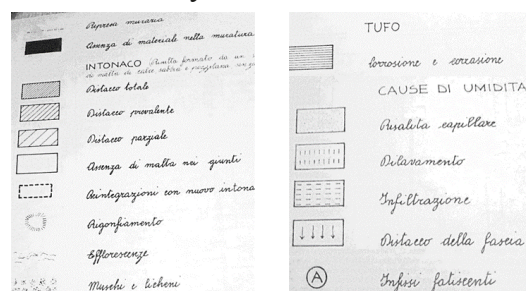 Ripresa muraria
Assenza di materiale nella muratura
INTONACO Risulta formato da un
di malta di calce sabbia e pozzolana
Distacco totale
Distacco prevalente
Distacco parziale
Assenza di malta nei giunti
Reintegrazioni con nuovo intona
Rigonfiamento
Efflorescenze
Muschi e licheni
TUFO
Corrosione e corrasione
CAUSE DI UMIDITA
Risalita capillare
Dilavamento
Infiltrazione
Distacco della fascia
A Infissi fatiscenti